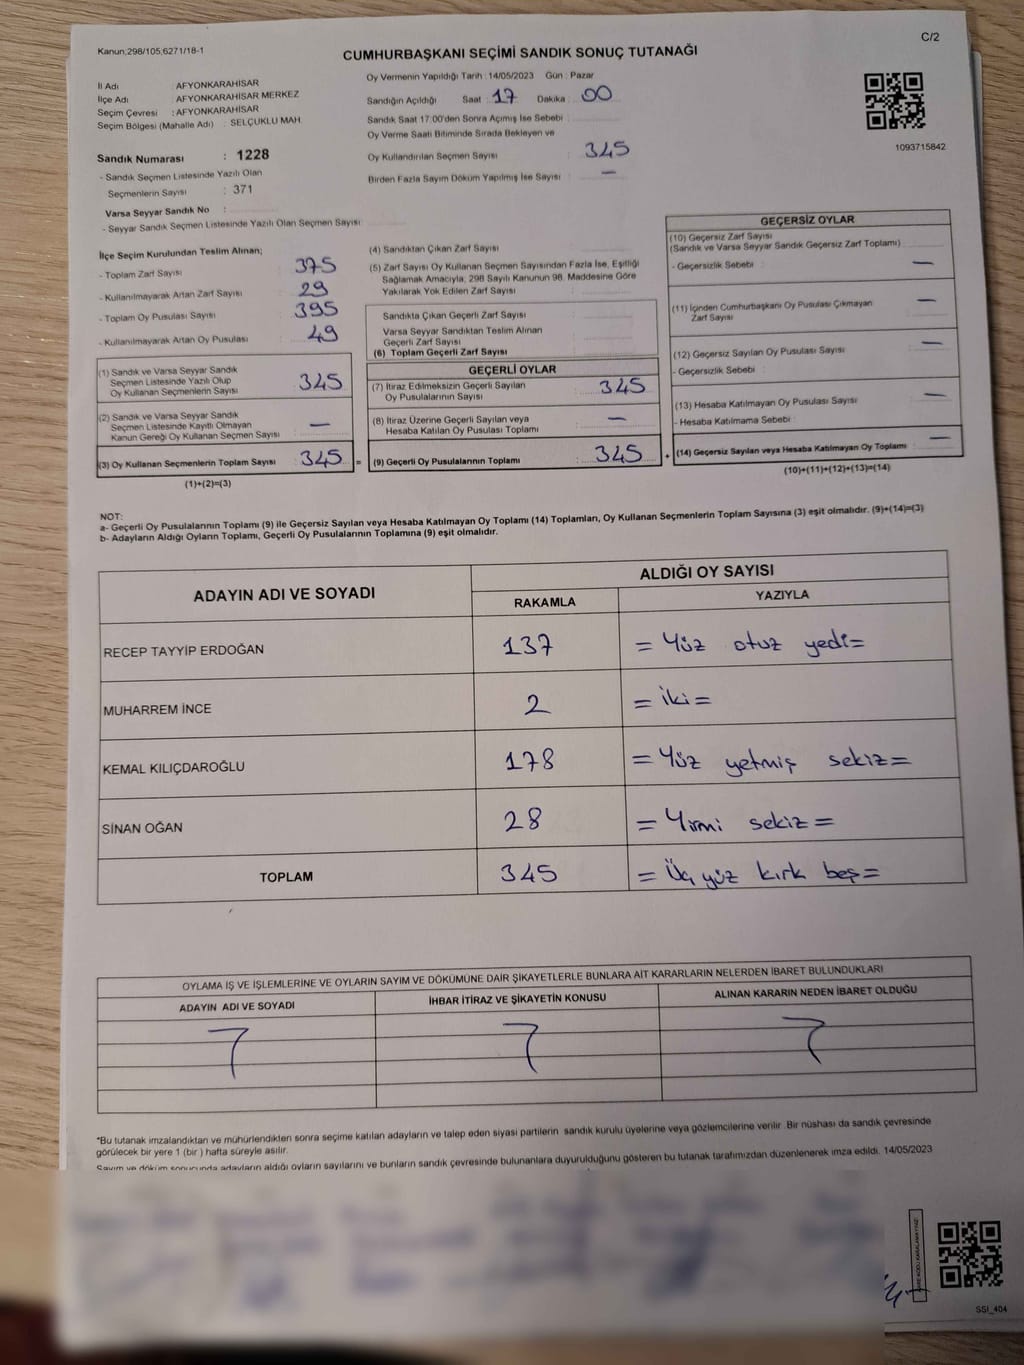 C/2
Kanun;298/105;6271/18-1
CUMHURBAŞKANI SEÇİMİ SANDIK SONUÇ TUTANAĞI
İl Adı : AFYONKARAHİSAR
İlçe Adı : AFYONKARAHİSAR MERKEZ
Seçim Çevresi : AFYONKARAHİSAR
Seçim Bölgesi (Mahalle Adı) : SELÇUKLU MAH
Sandık Numarası : 1228
- Sandık Seçmen Listesinde Yazılı Olan
Seçmenlerin Sayısı : 371
Varsa Seyyar Sandık No :
- Seyyar Sandık Seçmen Listesinde Yazılı Olan Seçmen Sayısı :
Oy Vermenin Yapıldığı Tarih : 14/05/2023 Gün : Pazar
Sandığın Açıldığı Saat : 17 Dakika : 00
Sandık Saat 17:00'den Sonra Açımış İse Sebebi :
Oy Verme Saati Bitiminde Sırada Bekleyen ve
Oy Kullandırılan Seçmen Sayısı : 345
Birden Fazla Sayım Döküm Yapılmış İse Sayısı : —
1093715842
İlçe Seçim Kurulundan Teslim Alınan;
- Toplam Zarf Sayısı : 375
- Kullanılmayarak Artan Zarf Sayısı : 29
- Toplam Oy Pusulası Sayısı : 395
- Kullanılmayarak Artan Oy Pusulası : 49
(1) Sandık ve Varsa Seyyar Sandık
Seçmen Listesinde Yazılı Olup
Oy Kullanan Seçmenlerin Sayısı : 345
(2) Sandık ve Varsa Seyyar Sandık
Seçmen Listesinde Kayıtlı Olmayan
Kanun Gereği Oy Kullanan Seçmen Sayısı : —
(3) Oy Kullanan Seçmenlerin Toplam Sayısı : 345 =
(1)+(2)=(3)
(4) Sandıktan Çıkan Zarf Sayısı :
(5) Zarf Sayısı Oy Kullanan Seçmen Sayısından Fazla İse, Eşitliği
Sağlamak Amacıyla; 298 Sayılı Kanunun 98. Maddesine Göre
Yakılarak Yok Edilen Zarf Sayısı :
Sandıkta Çıkan Geçerli Zarf Sayısı :
Varsa Seyyar Sandıktan Teslim Alınan
Geçerli Zarf Sayısı :
(6) Toplam Geçerli Zarf Sayısı :
GEÇERLİ OYLAR
(7) İtiraz Edilmeksizin Geçerli Sayılan
Oy Pusulalarının Sayısı : 345
(8) İtiraz Üzerine Geçerli Sayılan veya
Hesaba Katılan Oy Pusulası Toplamı : —
(9) Geçerli Oy Pusulalarının Toplamı : 345 +
GEÇERSİZ OYLAR
(10) Geçersiz Zarf Sayısı
(Sandık ve Varsa Seyyar Sandık Geçersiz Zarf Toplamı) :
- Geçersizlik Sebebi : —
(11) İçinden Cumhurbaşkanı Oy Pusulası Çıkmayan
Zarf Sayısı : —
(12) Geçersiz Sayılan Oy Pusulası Sayısı : —
- Geçersizlik Sebebi :
(13) Hesaba Katılmayan Oy Pusulası Sayısı : —
- Hesaba Katılmama Sebebi :
(14) Geçersiz Sayılan veya Hesaba Katılmayan Oy Toplamı : —
(10)+(11)+(12)+(13)=(14)
NOT:
a- Geçerli Oy Pusulalarının Toplamı (9) ile Geçersiz Sayılan veya Hesaba Katılmayan Oy Toplamı (14) Toplamları, Oy Kullanan Seçmenlerin Toplam Sayısına (3) eşit olmalıdır. (9)+(14)=(3)
b- Adayların Aldığı Oyların Toplamı, Geçerli Oy Pusulalarının Toplamına (9) eşit olmalıdır.
ADAYIN ADI VE SOYADI ALDIĞI OY SAYISI
RAKAMLA YAZIYLA
RECEP TAYYİP ERDOĞAN 137 = Yüz otuz yedi =
MUHARREM İNCE 2 = iki =
KEMAL KILIÇDAROĞLU 178 = Yüz yetmiş sekiz =
SİNAN OĞAN 28 = Yirmi sekiz =
TOPLAM 345 = Üç yüz kırk beş =
OYLAMA İŞ VE İŞLEMLERİNE VE OYLARIN SAYIM VE DÖKÜMÜNE DAİR ŞİKAYETLERLE BUNLARA AİT KARARLARIN NELERDEN İBARET BULUNDUKLARI
ADAYIN ADI VE SOYADI İHBAR İTİRAZ VE ŞİKAYETİN KONUSU ALINAN KARARIN NEDEN İBARET OLDUĞU
*Bu tutanak imzalandıktan ve mühürlendikten sonra seçime katılan adayların ve talep eden siyasi partilerin sandık kurulu üyelerine veya gözlemcilerine verilir. Bir nüshası da sandık çevresinde
görülecek bir yere 1 (bir ) hafta süreyle asılır.
Sayım ve döküm sonucunda adayların aldığı oyların sayılarını ve bunların sandık çevresinde bulunanlara duyurulduğunu gösteren bu tutanak tarafımızdan düzenlenerek imza edildi. 14/05/2023
SSI_404